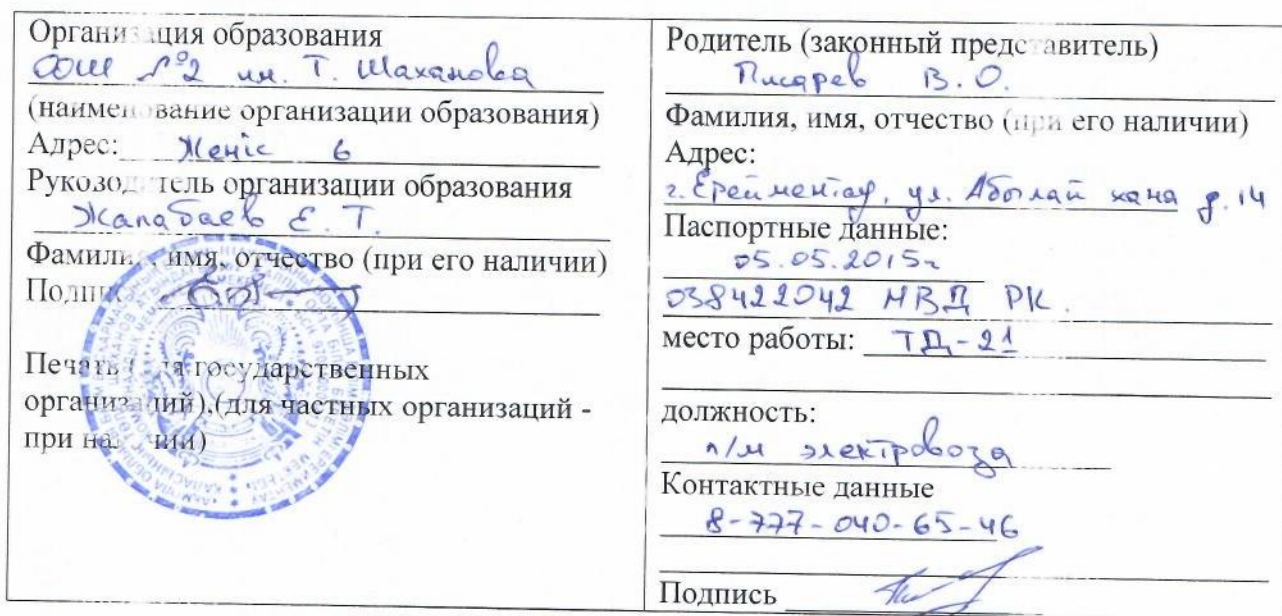 Организация образования
ООШ №2 им. Т. Шаханова
(наименование организации образования)
Адрес: Жеңіс 6
Руководитель организации образования
Жапабаев Е. Т.
Фамилия, имя, отчество (при его наличии)
Подпись
Печать (для государственных
организаций),(для частных организаций -
при наличии)
Родитель (законный представитель)
Писарев В. О.
Фамилия, имя, отчество (при его наличии)
Адрес:
г. Ерейментау, ул. Абылай хана д. 14
Паспортные данные:
05.05.2015г
038422042 МВД РК.
место работы: ТД-21
должность:
п/м электровоза
Контактные данные
8-777-040-65-46
Подпись